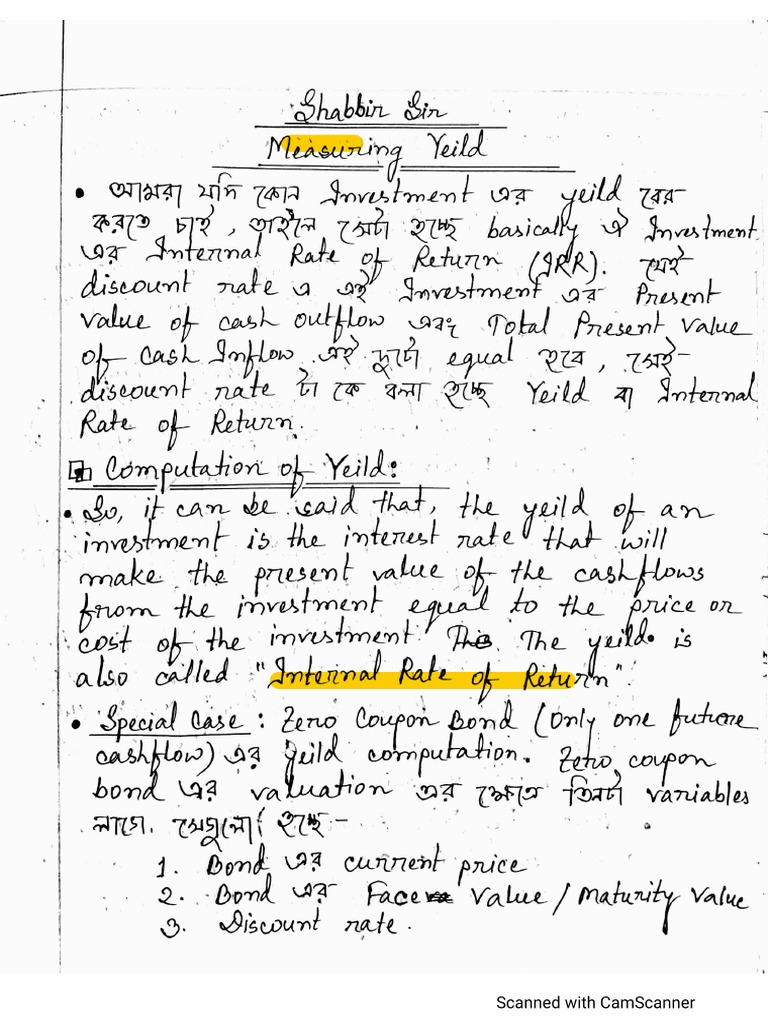 Shabbir Sir
Measuring Yeild
• আমরা যদি কোন Investment এর yeild বের
করতে চাই, তাহলে সেটা হচ্ছে basically ঐ Investment
এর Internal Rate of Return (IRR). যেই
discount rate এ এই Investment এর Present
value of cash outflow এবং Total Present value
of cash Inflow এই দুটো equal হবে, সেই-
discount rate টা কে বলা হচ্ছে Yeild বা Internal
Rate of Return.
Computation of Yeild:
• So, it can be said that, the yeild of an
investment is the interest rate that will
make the present value of the cashflows
from the investment equal to the price or
cost of the investment. The yeild is
also called "Internal Rate of Return".
• Special Case: Zero Coupon Bond (Only one future
cashflow) এর yeild computation. Zero coupon
bond এর valuation এর ক্ষেত্রে তিনটা variables
লাগে. সেগুলো হচ্ছে-
1. Bond এর current price
2. Bond এর Face Value / Maturity Value
3. Discount rate.
Scanned with CamScanner